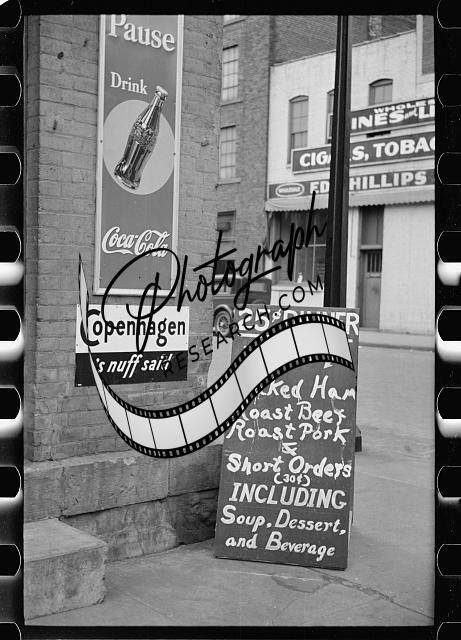 Pause
Drink
Coca-Cola
Copenhagen
's nuff said
WHOLES
INES
CIGARS, TOBAC
WHOLESALE
ED. PHILLIPS
Photograph
RESEARCH.COM
25¢ DINNER
Ham
Roast Beef
Roast Pork
&
Short Orders
(30¢)
INCLUDING
Soup, Dessert,
and Beverage